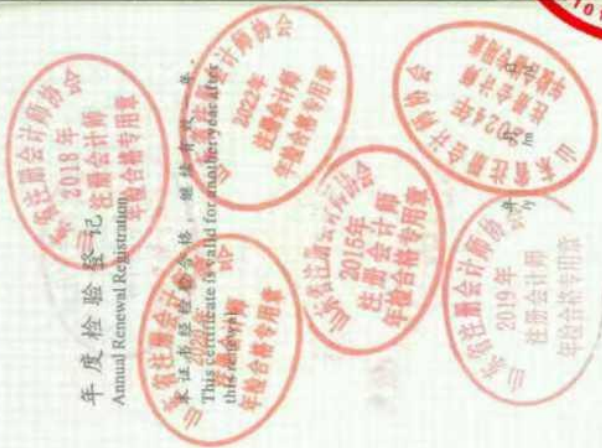 年度检验登记
Annual Renewal Registration
本证书经检验合格，继续有效一年。
This certificate is valid for another year after
this renewal.
山东省注册会计师协会
2018年
注册会计师
年检合格专用章
山东省注册会计师协会
2022年
注册会计师
年检合格专用章
山东省注册会计师协会
2024年
注册会计师
年检合格专用章
山东省注册会计师协会
注册会计师
年检合格专用章
山东省注册会计师协会
2015年
注册会计师
年检合格专用章
山东省注册会计师协会
2019年
注册会计师
年检合格专用章
年 月 日
/y /m /d